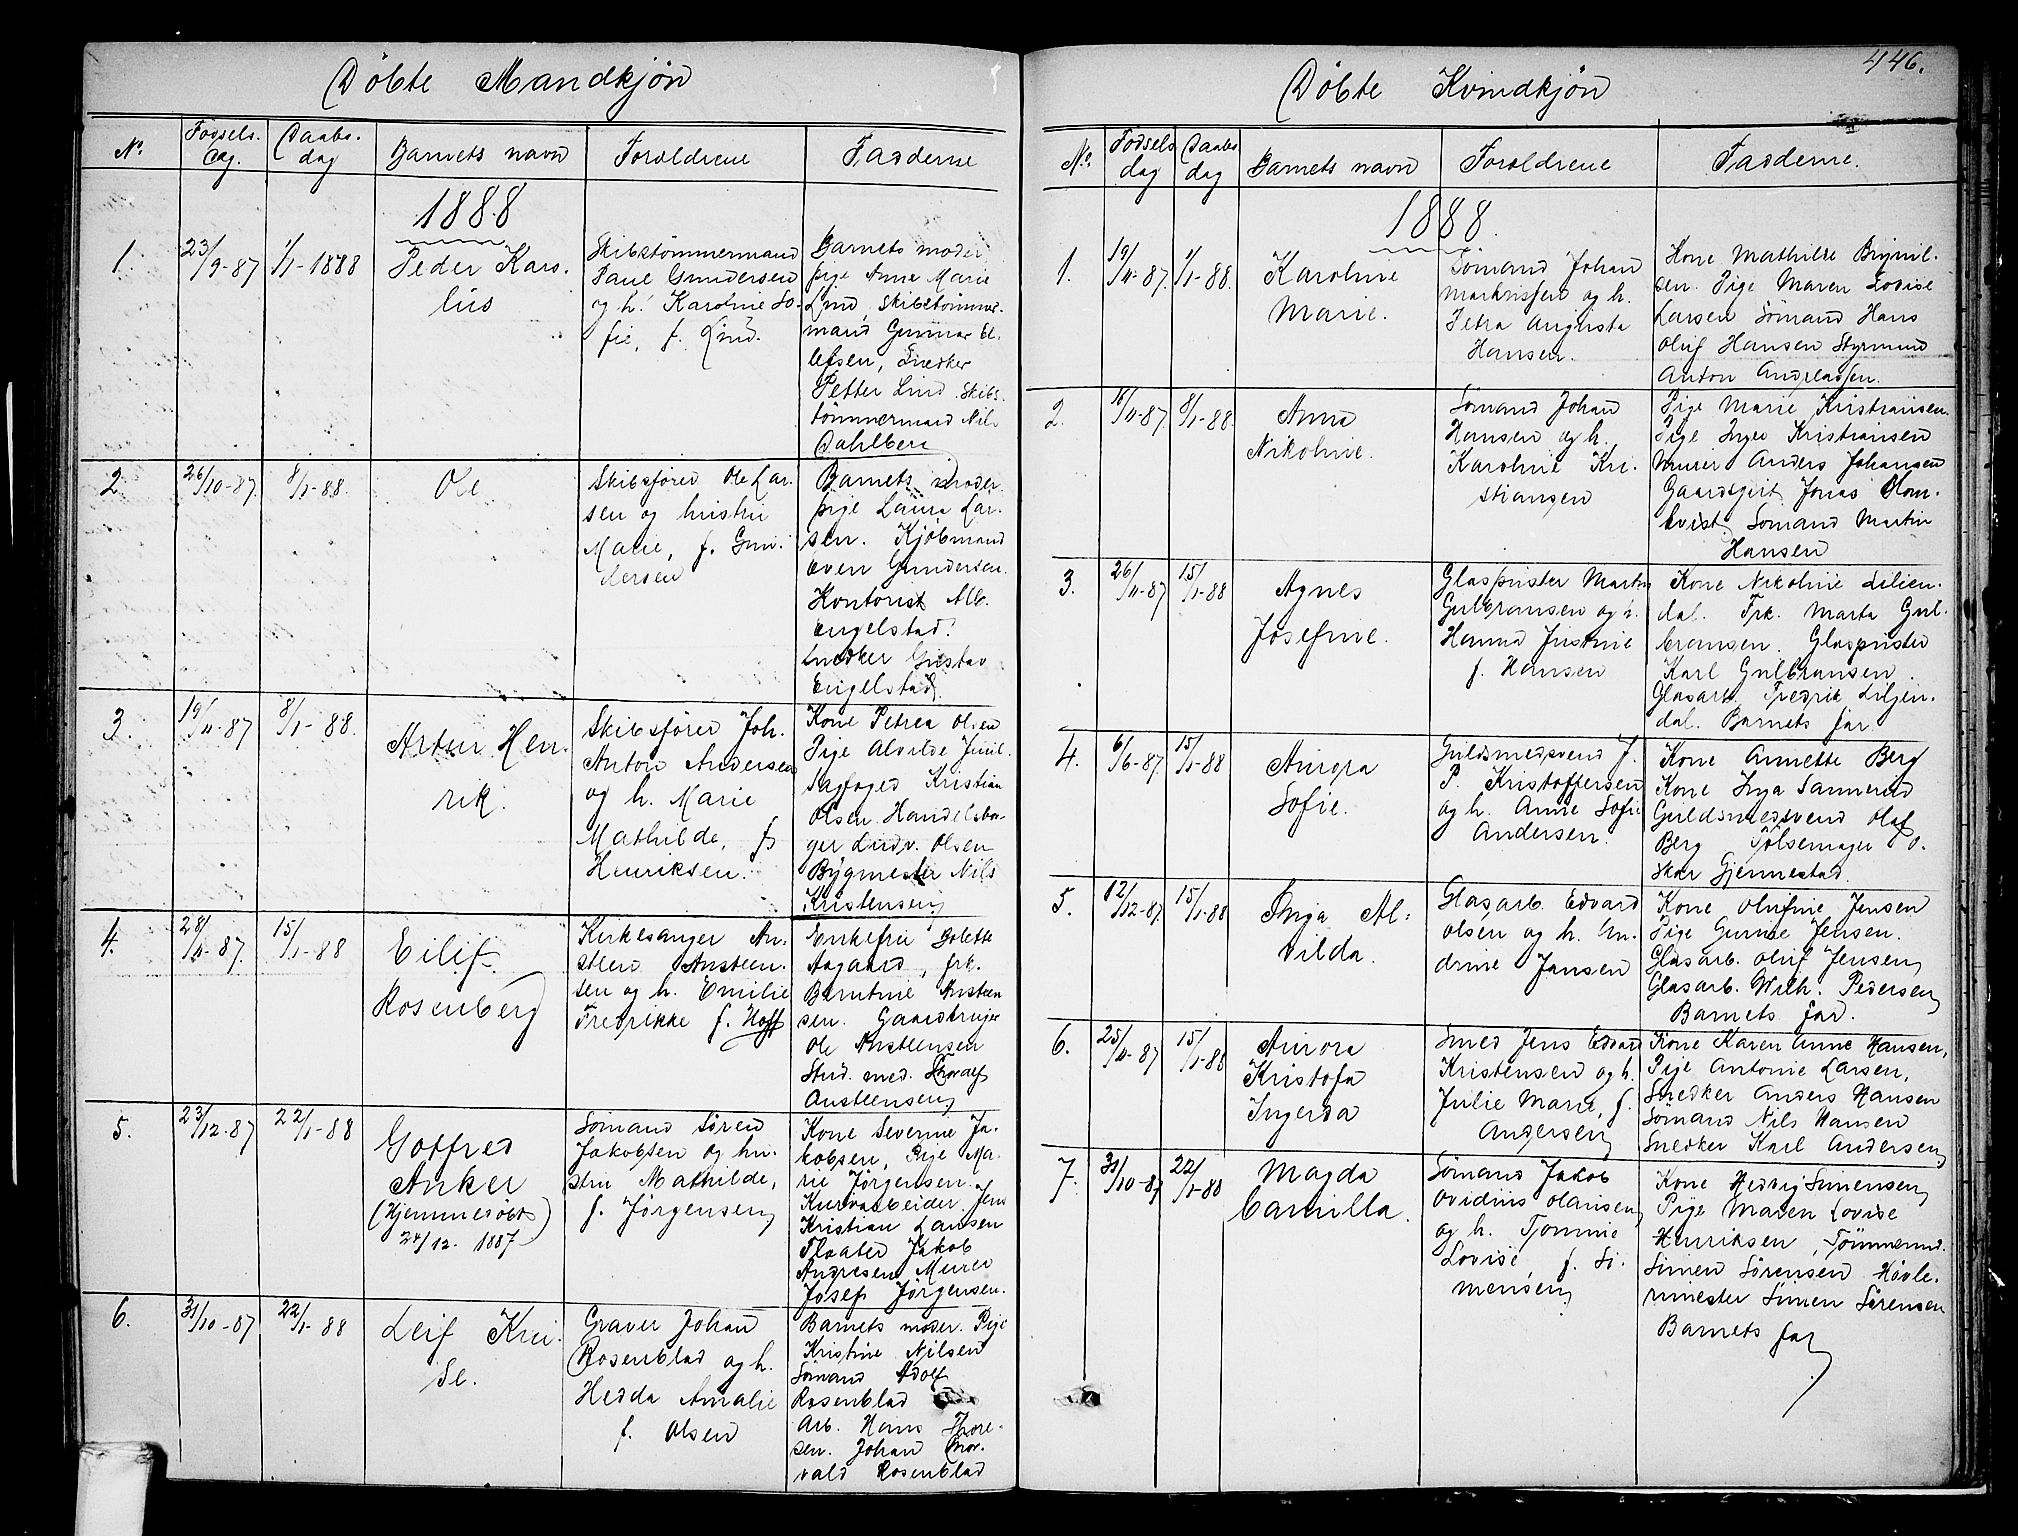 446.
Döbte Mandkjön
No. Födsels. Dag. Daabs. dag Barnets navn Forældrene Fadderne
1888
1. 23/9-87 1/1-1888 Peder Karo-
lius
Skibstömmermand
Paul Gundersen
og h. Karoline So-
fie, f. Lind.
Barnets moder
pige Anne Marie
Lind, Skibstömmer-
mand Gunnar El-
lefsen, Snedker
Petter Lind. Skibs-
tömmermand Nils
Dahlberg
2. 26/10-87. 8/1-88. Ole
Skibsförer Ole Lar-
sen og hustru
Marie, f. Gun-
dersen
Barnets moder
pige Laura Lar-
sen. Kjöbmand
Even Gundersen.
Kontorist Alb.
Engelstad.
Snedker Gustav
Engelstad.
3. 19/11-87 8/1-88. Artur Hen-
rik.
Skibsförer Joh.
Anton Andersen
og h. Marie
Mathilde, f.
Henriksen.
Kone Petrea Olsen
Pige Alvilde Juul
Sagfoged Kristian
Olsen Handelsbor-
ger Ludv. Olsen
Bygmester Nils
Kristensen
4. 28/11-87. 15/1-88 Eilif
Rosenberg
Kirkesanger An-
steen Ansteen-
sen og h. Emilie
Fredrikke f. Hoff
Enkefru Golette
Aagaard, frk.
Berntine Ansteen
sen. Gaardbruger
Ole Ansteensen
Stud. med. Thoralf
Ansteensen
5. 23/12-87 22/1-88 Gotfred
Anker
(Hjemmedöbt
24/12. 1887)
Sömand Sören
Jakobsen og hu-
stru Mathilde,
f. Jörgensen
Kone Severine Ja-
kobsen, Pige Ma-
rie Jörgensen.
Kurvarbeider Jens
Kristian Larsen
Fløater Jakob
Andresen Murer
Josef Jörgensen.
6. 31/10-87 22/1-88 Leif Kru-
se.
Graver Johan
Rosenblad og h.
Hedda Amalie
f. Olsen
Barnets moder. Pige
Kristine Nilsen
Sömand Adolf
Rosenblad
Arb. Hans Thore-
sen. Johan Thor-
vald Rosenblad
Döbte Kvindkjön
No. Födsels dag Daabs dag Barnets navn Forældrene Fadderne.
1888.
1. 19/11-87. 1/1-88. Karoline
Marie.
Sömand Johan
Markussen og h.
Petra Augusta
Hansen.
Kone Mathilde Brynil-
sen. Pige Maren Lovise
Larsen Sömand Hans
Oluf Hansen Styrmand
Anton Andreassen.
2. 16/11-87. 8/1-88. Anna
Nikoline.
Sömand Johan
Hansen og h.
Karoline Kri-
stiansen
Pige Marie Kristiansen.
Pige Inga Kristiansen
Murer Anders Johansen
Gaardsgut Jonas Blom-
kvist Sömand Martin
Hansen
3. 26/11-87 15/1-88 Agnes
Josefine.
Glaspuster Martin
Gulbransen og h.
Hanna Justine
f. Hansen
Kone Nikoline Lilien-
dal. Frk. Marta Gul-
bransen. Glaspuster
Karl Gulbransen.
Glasarb. Fredrik Liljen-
dal. Barnets far
4. 6/6-87. 15/1-88 Aurora
Sofie.
Guldsmedsvend J.
P. Kristoffersen
og h. Anne Sofie
Andersen.
Kone Annette Berg
Kone Inga Sannerud
Guldsmedsvend Olaf
Berg Pölsemager O-
skar Gjennestad.
5. 12/12-87 15/1-88 Inga Al-
vilda.
Glasarb. Edvard
Olsen og h. An-
drine Jansen
Kone Olufine Jensen
Pige Gurine Jensen.
Glasarb. Oluf Jensen
Glasarb. Wilh. Pedersen
Barnets far.
6. 25/11-87 15/1-88 Aurora
Kristofa
Ingerda
Smed Jens Edvard
Kristensen og h.
Julie Marie, f.
Andersen
Kone Karen Anne Hansen,
Pige Antonie Larsen,
Snedker Anders Hansen
Sömand Nils Hansen
Snedker Karl Andersen
7. 31/10-87 22/1-88 Magda
Camilla.
Sömand Jakob
Ovidius Olausen
og h. Tomine
Lovise, f. Si-
mensen
Kone Hedvig Simensen
Pige Maren Lovise
Henriksen, Tömmermd.
Simen Sörensen Hövle-
mester Simen Sörensen
Barnets far